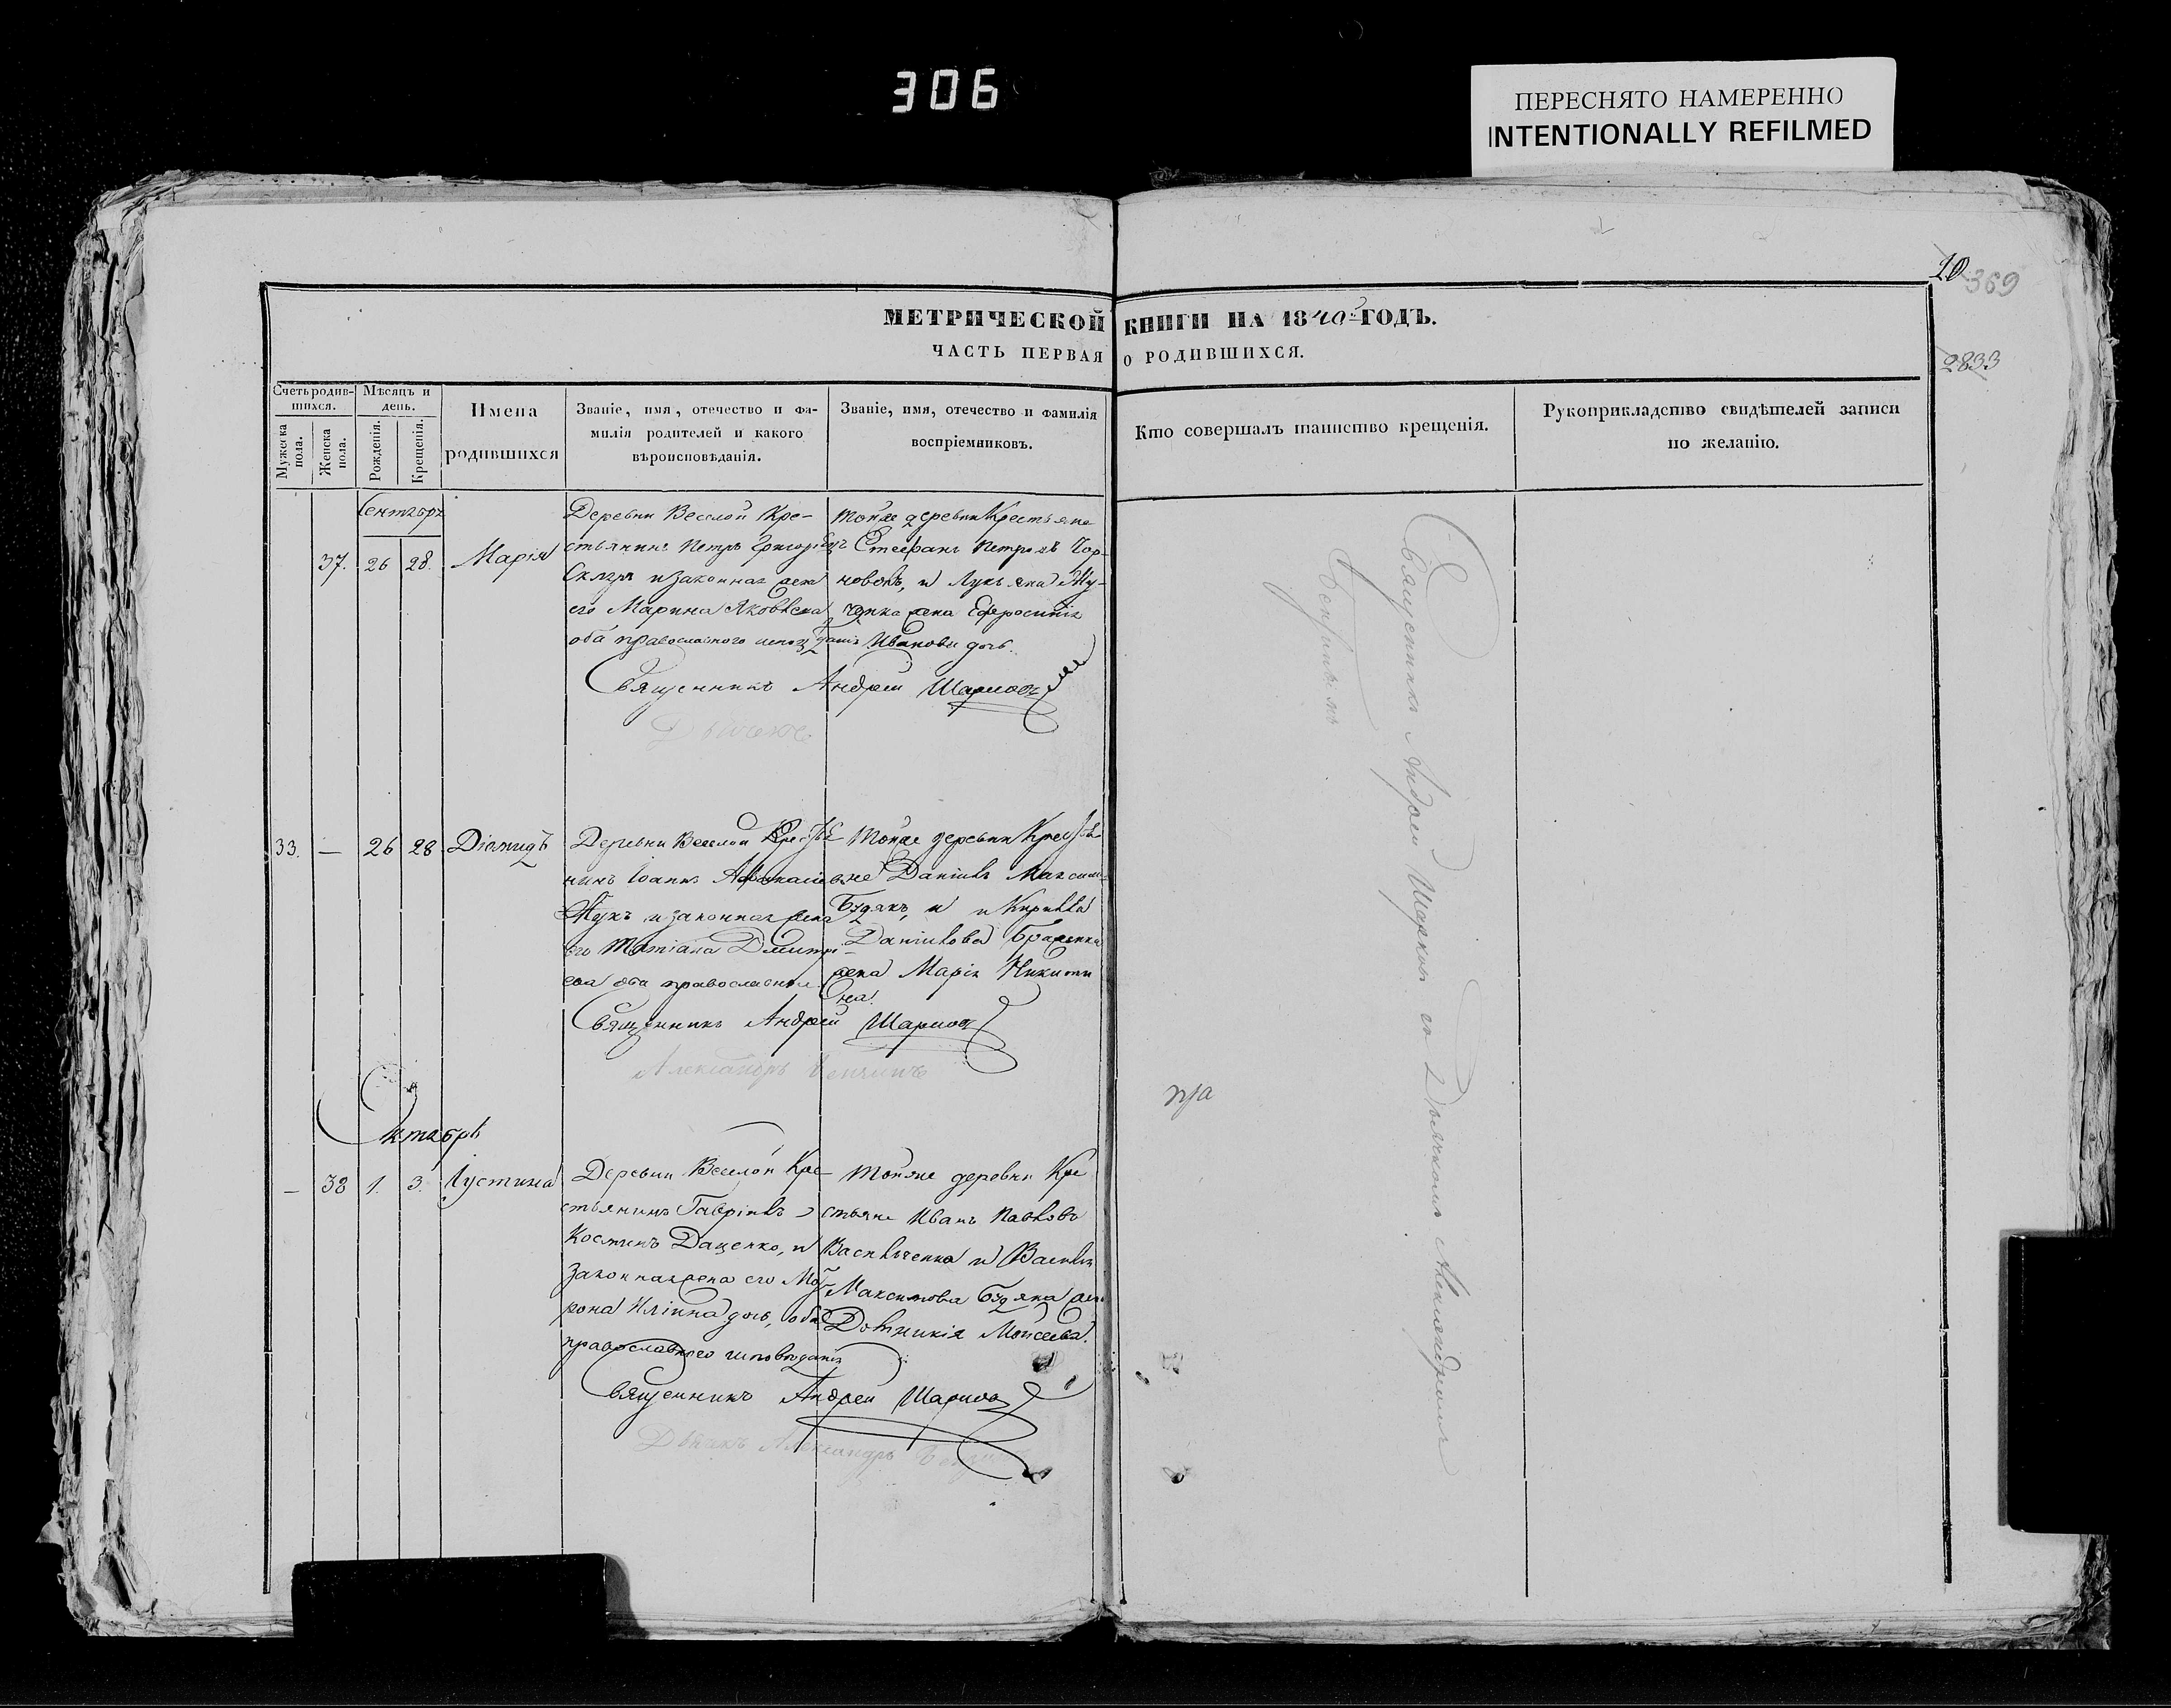 306
ПЕРЕСНЯТО НАМЕРЕННО
INTENTIONALLY REFILMED
10 369
2833
МЕТРИЧЕСКОЙ КНИГИ НА 1840 ГОДЪ.
ЧАСТЬ ПЕРВАЯ О РОДИВШИХСЯ.
Счетъ родив-
шихся.
Мужеска
пола.
Женска
пола.
Мѣсяцъ и
день.
Рожденія.
Крещенія.
Имена
родившихся
Званіе, имя, отечество и фа-
милія родителей и какого
вѣроисповѣданія.
Званіе, имя, отечество и фамилія
воспріемниковъ.
Кто совершалъ таинство крещенія.
Рукоприкладство свидѣтелей записи
по желанію.
Сентябрь
37. 26 28. Марія
Деревни Веселой Кре-
стьянинъ Петръ Григоріевъ
Скляръ и законная жена
его Марина Яковлева
оба православнаго
Тойже деревни Крестьяне
Стефанъ Петровъ Чор-
новолъ, и Лукьяна
жена Ефросинія
Иванова дочь.
Священникъ Андрей
Дьячекъ
33. — 26 28 Діомидъ
Деревни Веселой Крестья
нинъ Іоаннъ
и законная жена
его Татіана Дмитрі-
ева оба православные
Тойже деревни Крестья
не Даніилъ Максим
Будякъ, и Кирилла
Даніилова
жена Марія Никити
на.
Священникъ Андрей
Александръ
Октябрь
— 38 1. 3. Іустина
Деревни Веселой Кре-
стьянинъ Гавріилъ
Костинъ Даценко, и
законная жена его Мот-
рона Иліина дочь, оба
православнаго исповѣданія
Тойже деревни Кре
стьяне Иванъ Павловъ
Васильченко и Василія
Максимова Будяка жена
Домникія Моисеева.
Священникъ Андрей
Дьячекъ Александръ
Священникъ Андрей съ Дьячкомъ Александромъ